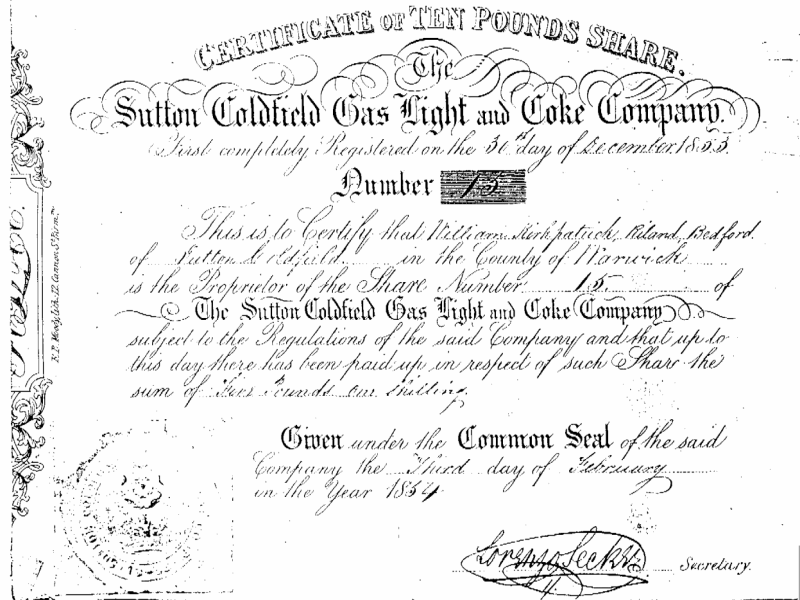 CERTIFICATE OF TEN POUNDS SHARE.
The
Sutton Coldfield Gas Light and Coke Company.
First completely Registered on the 30th day of December 1853
Number 15
This is to Certify that William Kirkpatrick Riland Bedford
of Sutton Coldfield in the County of Warwick
is the Proprietor of the Share Number 15 of
The Sutton Coldfield Gas Light and Coke Company
subject to the Regulations of the said Company and that up to
this day there has been paid up in respect of such Share the
sum of Pounds one shilling
Given under the Common Seal of the said
Company the Third day of February
in the Year 1854
Lorenzo
Secretary.